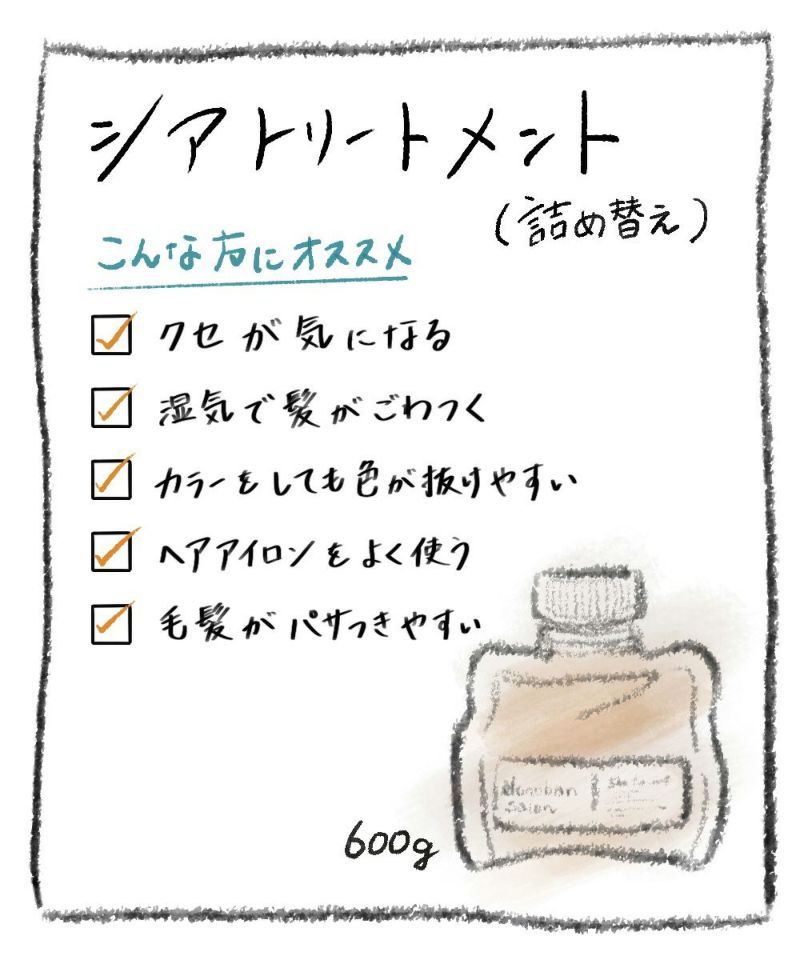 シアトリートメント
(詰め替え)
こんな方にオススメ
クセが気になる
湿気で髪がごわつく
カラーをしても色が抜けやすい
ヘアアイロンをよく使う
毛髪がパサつきやすい
salon
600g